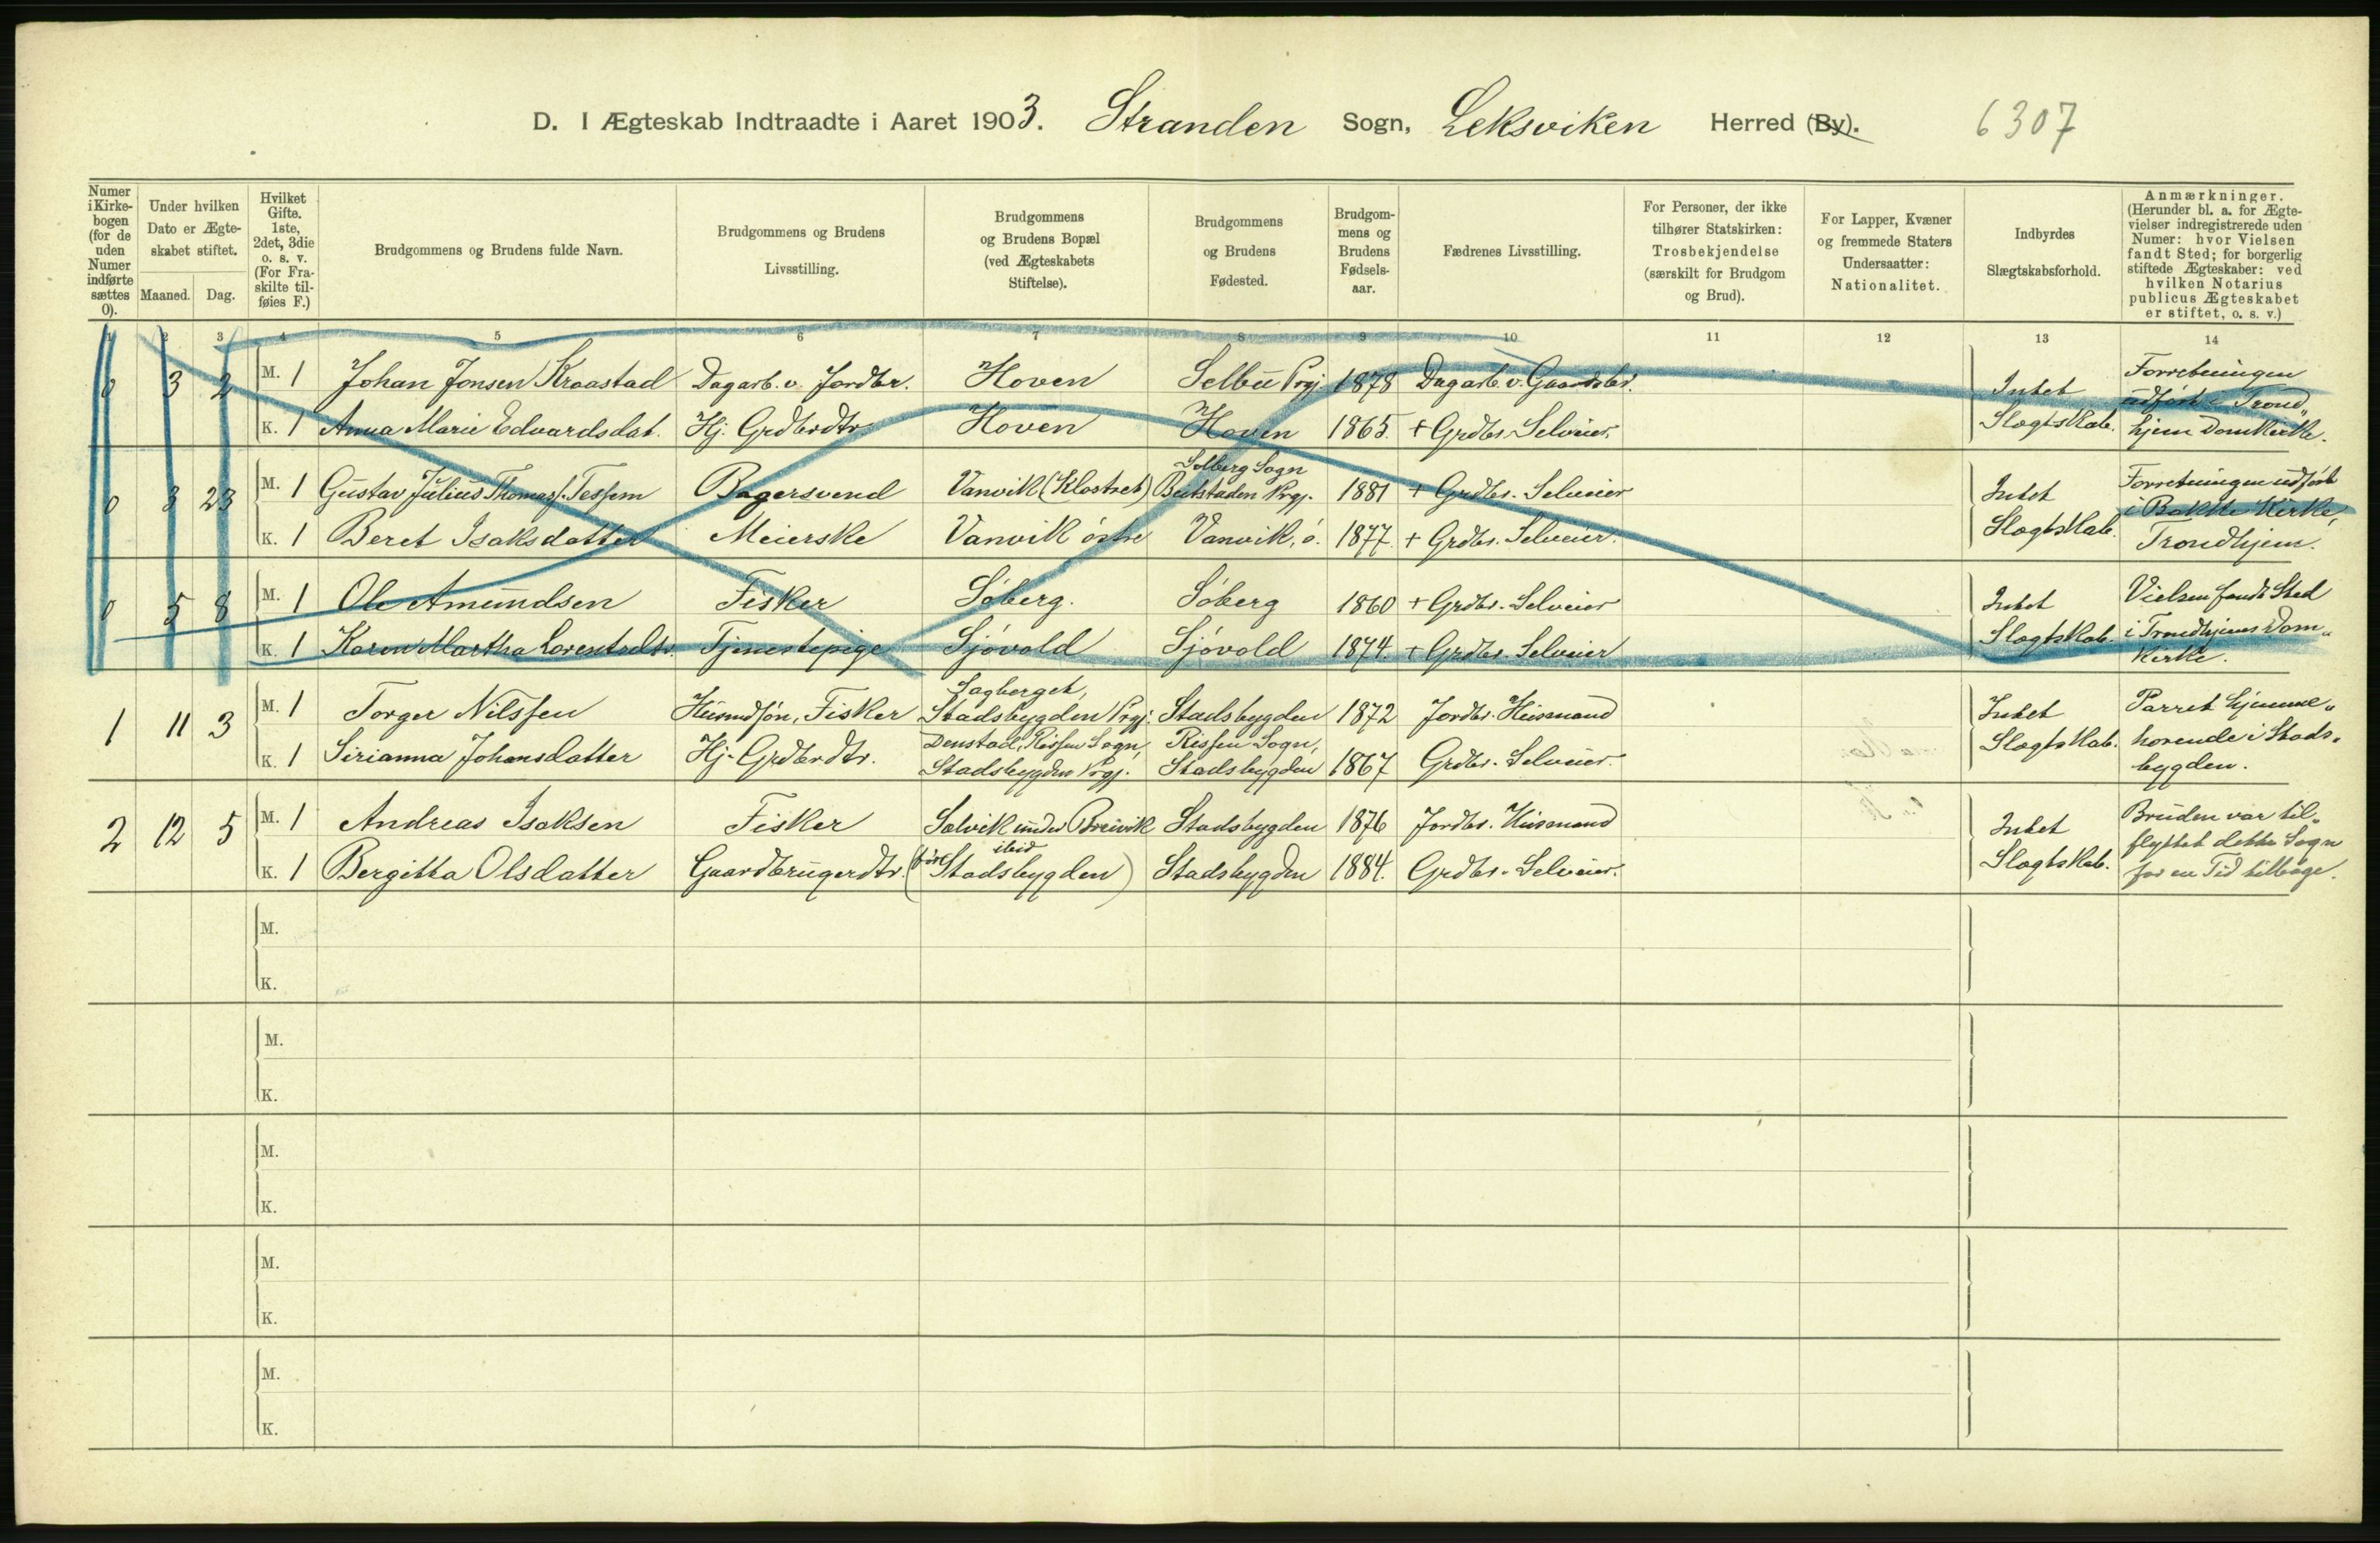 D. I Ægteskab Indtraadte i Aaret 1903. Stranden Sogn, Leksviken Herred (By). 6307
Numer i Kirkebogen (for de uden Numer indførte sættes 0).
Under hvilken Dato er Ægteskabet stiftet.
Maaned. Dag.
Hvilket Gifte. 1ste, 2det, 3die o. s. v. (For Fraskilte tilføies F.)
Brudgommens og Brudens fulde Navn.
Brudgommens og Brudens Livsstilling.
Brudgommens og Brudens Bopæl (ved Ægteskabets Stiftelse).
Brudgommens og Brudens Fødested.
Brudgommens og Brudens Fødselsaar.
Fædrenes Livsstilling.
For Personer, der ikke tilhører Statskirken: Trosbekjendelse (særskilt for Brudgom og Brud).
For Lapper, Kvæner og fremmede Staters Undersaatter: Nationalitet.
Indbyrdes Slægtskabsforhold.
Anmærkninger. (Herunder bl. a. for Ægtevielser indregistrerede uden Numer: hvor Vielsen fandt Sted; for borgerlig stiftede Ægteskaber: ved hvilken Notarius publicus Ægteskabet er stiftet, o. s. v.)
1 2 3 4 5 6 7 8 9 10 11 12 13 14
0 3 2 M. 1 Johan Jonsen Kraastad Dagarb. v. Jordbr. Hoven Selbu Prgj. 1878 Dagarb. v. Gaardsbr. Intet Slægtskab. Forretningen udført i Trondhjem Domkirke.
K. 1 Anna Marie Edvardsdat. Hj. Grdbrdtr. Hoven Hoven 1865. + Grdbr. Selveier.
0 3 23 M. 1 Gustav Julius Thomass. Tessem Bagersvend Vanvik (Klostret) Solberg Sogn Beitstaden Prgj. 1881 + Grdbr. Selveier Intet Slægtskab. Forretningen udført i Bakke Kirke, Trondhjem.
K. 1 Beret Isaksdatter Meierske Vanvik östre Vanvik, ö. 1877. + Grdbr. Selveier.
0 5 8 M. 1 Ole Amundsen Fisker Söberg. Söberg 1860 + Grdbr. Selveier Intet Slægtskab. Vielsen fandt Sted i Trondhjems Domkirke.
K. 1 Karen Martha Lorentsdtr. Tjenestepige Sjövold Sjövold 1874. + Grdbr. Selveier
1 11 3 M. 1 Torger Nilssen Husmdsön, Fisker Sagberget, Stadsbygden Prgj. Stadsbygden 1872 Jordbr. Husmand Intet Slægtskab. Parret hjemmehorende i Stadsbygden.
K. 1 Sirianna Johansdatter Hj. Grdbrdtr. Denstad, Rissen Sogn, Stadsbygden Prgj. Rissen Sogn, Stadsbygden 1867 Grdbr. Selveier.
2 12 5 M. 1 Andreas Isaksen Fisker Solvik under Breivik Stadsbygden 1876 Jordbr. Husmand Intet Slægtskab. Bruden var tilflyttet dette Sogn for en Tid tilbage.
K. 1 Bergitta Olsdatter Gaardbrugerdtr. ibid (för Stadsbygden) Stadsbygden 1884. Grdbr. Selveier.
M.
K.
M.
K.
M.
K.
M.
K.
M.
K.